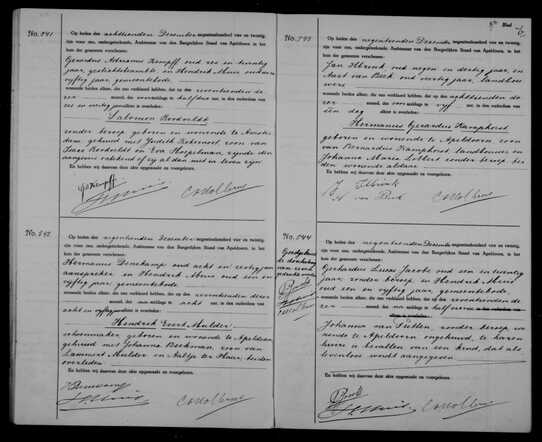 No. 541
Op heden den achttienden December negentienhonderd vier en twintig,
zijn voor ons, ondergeteekende, Ambtenaar van den Burgerlijken Stand van Apeldoorn, in het
huis der gemeente verschenen:
Gerardus Adrianus Kempff oud
jaar, gestichtsbeambte en Hendrik Muis oud een en
vijftig jaar, gemeentebode
wonende beiden alhier, die ons verklaard hebben, dat op den zeventienden de-
zer maand, des voormiddags te half een ure, in den ouderdom van
zes en veertig jaren alhier is overleden:
Salomon Roodveldt
zonder beroep geboren en wonende te Amster-
dam, gehuwd met Judith zoon van
Isaac Roodveldt en Eva Hoepelman, zijnde den
aangevers onbekend of zij al dan niet in leven zijn
En hebben wij daarvan deze akte opgemaakt en voorgelezen.
No. 542
Op heden den negentienden December negentienhonderd vier en twintig,
zijn voor ons, ondergeteekende, Ambtenaar van den Burgerlijken Stand van Apeldoorn, in het
huis der gemeente verschenen:
Hermanus Denekamp oud acht en zestig jaar
aanspreker en Hendrik Muis oud een en
vijftig jaar gemeentebode
wonende beiden alhier, die ons verklaard hebben, dat op den zeventienden dezer
maand, des namiddags te acht ure, in den ouderdom van
acht en vijftig jaren alhier is overleden:
Hendrik Evert Mulder
schoenmaker geboren en wonende te Apeldoorn
gehuwd met Johanna Beekman, zoon van
Lammert Mulder en Aaltje ter Haar, beiden
overleden
En hebben wij daarvan deze akte opgemaakt en voorgelezen.
Blad
No. 543
Op heden den negentienden December negentienhonderd vier en twintig,
zijn voor ons, ondergeteekende, Ambtenaar van den Burgerlijken Stand van Apeldoorn, in het
huis der gemeente verschenen:
Jan oud negen en dertig jaar en
Aart van Beek oud veertig jaar, landbou-
wers
wonende beiden alhier, die ons verklaard hebben, dat op den achttienden de-
zer maand, des voormiddags te vijf ure, in den ouderdom van
één dag alhier is overleden:
Hermanus Gerardus Kamphorst
geboren en wonende te Apeldoorn zoon
van Bernardus Kamphorst landbouwer en
Johanna Maria Lobbert zonder beroep bei-
den wonende alhier
En hebben wij daarvan deze akte opgemaakt en voorgelezen.
No. 544
Op heden den negentienden December negentienhonderd vier en twintig,
zijn voor ons, ondergeteekende, Ambtenaar van den Burgerlijken Stand van Apeldoorn, in het
huis der gemeente verschenen:
Gerhardus Lucas Jacobs oud een en twintig
jaar zonder beroep en Hendrik Muis
oud een en vijftig jaar, gemeentebode
wonende beiden alhier, die ons verklaard hebben, dat op den zeventienden de-
zer maand, des namiddags te half zeven ure
Johanna van Putten, zonder beroep wo-
nende te Apeldoorn ongehuwd, te haren
huize is bevallen van een kind, dat als
levenloos wordt aangegeven
En hebben wij daarvan deze akte opgemaakt en voorgelezen.